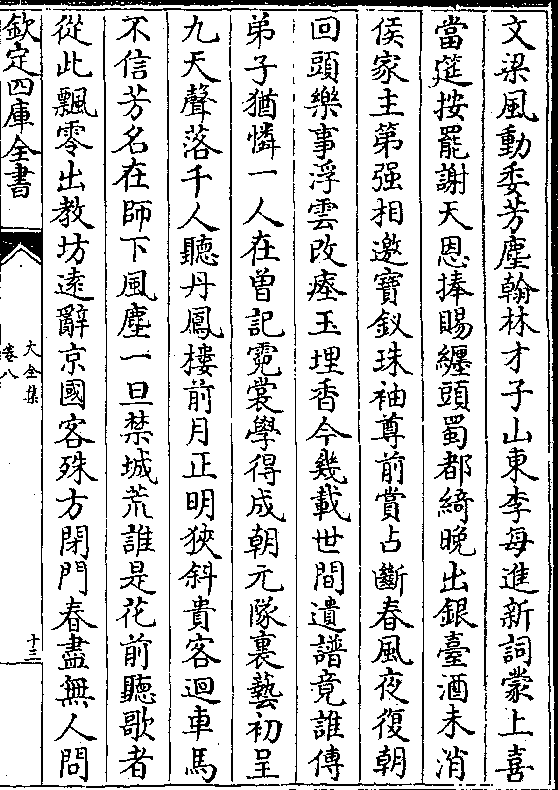 文梁風動委芳塵翰林才子山東李每進新詞蒙上喜
當筵按罷謝天恩捧賜纏頭蜀都綺晚出銀臺酒未消
侯家主第强相邀寶釵珠袖尊前賞占斷春風夜復朝
回頭樂事浮雲改瘞玉埋香今幾載世間遺譜竟誰傳
弟子猶憐一人在曽記霓裳學得成朝元隊裏藝初呈
九天聲落千人聽丹鳳樓前月正明狹斜貴客迴車馬
不信芳名在師下風塵一旦禁城荒誰是花前聽歌者
從此飄零出教坊遠辭京國客殊方閉門春盡無人問
欽定四庫全書
大全集
卷八
十三